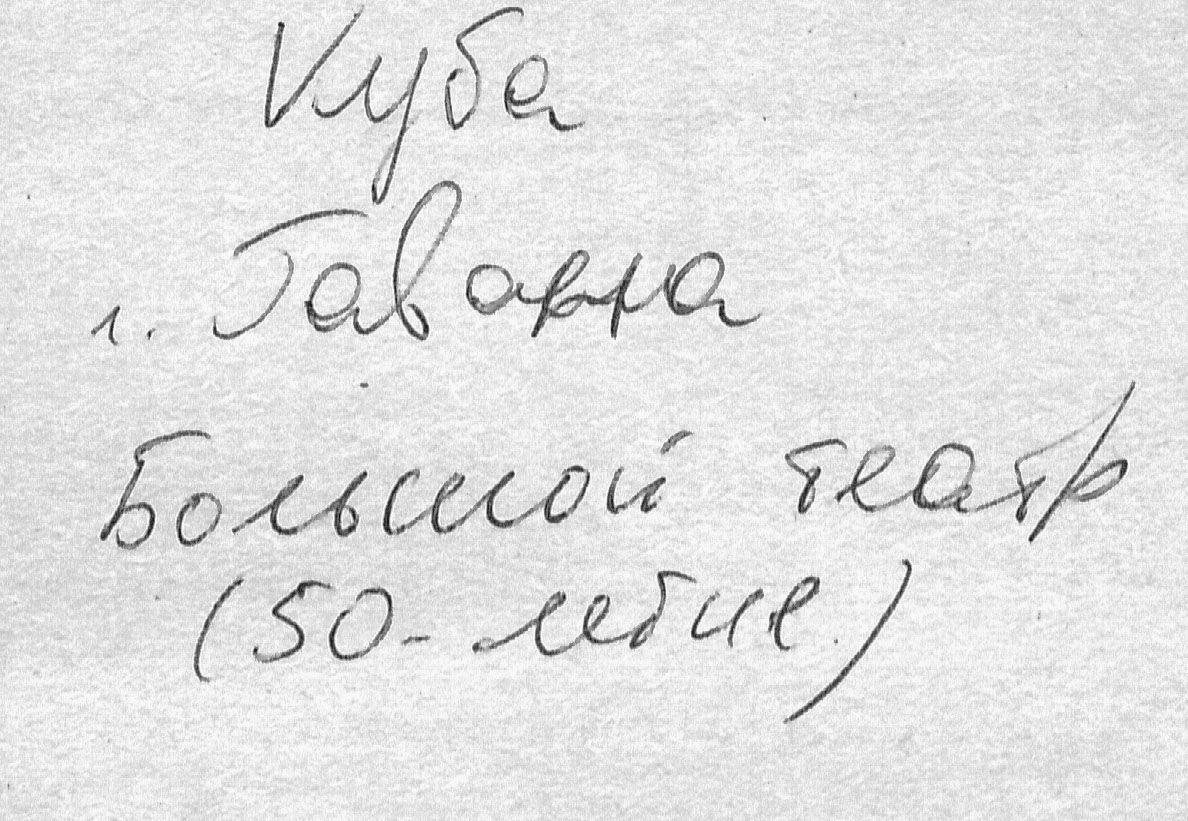 Куба
г. Гаванна
Большой театр
(50-летие)